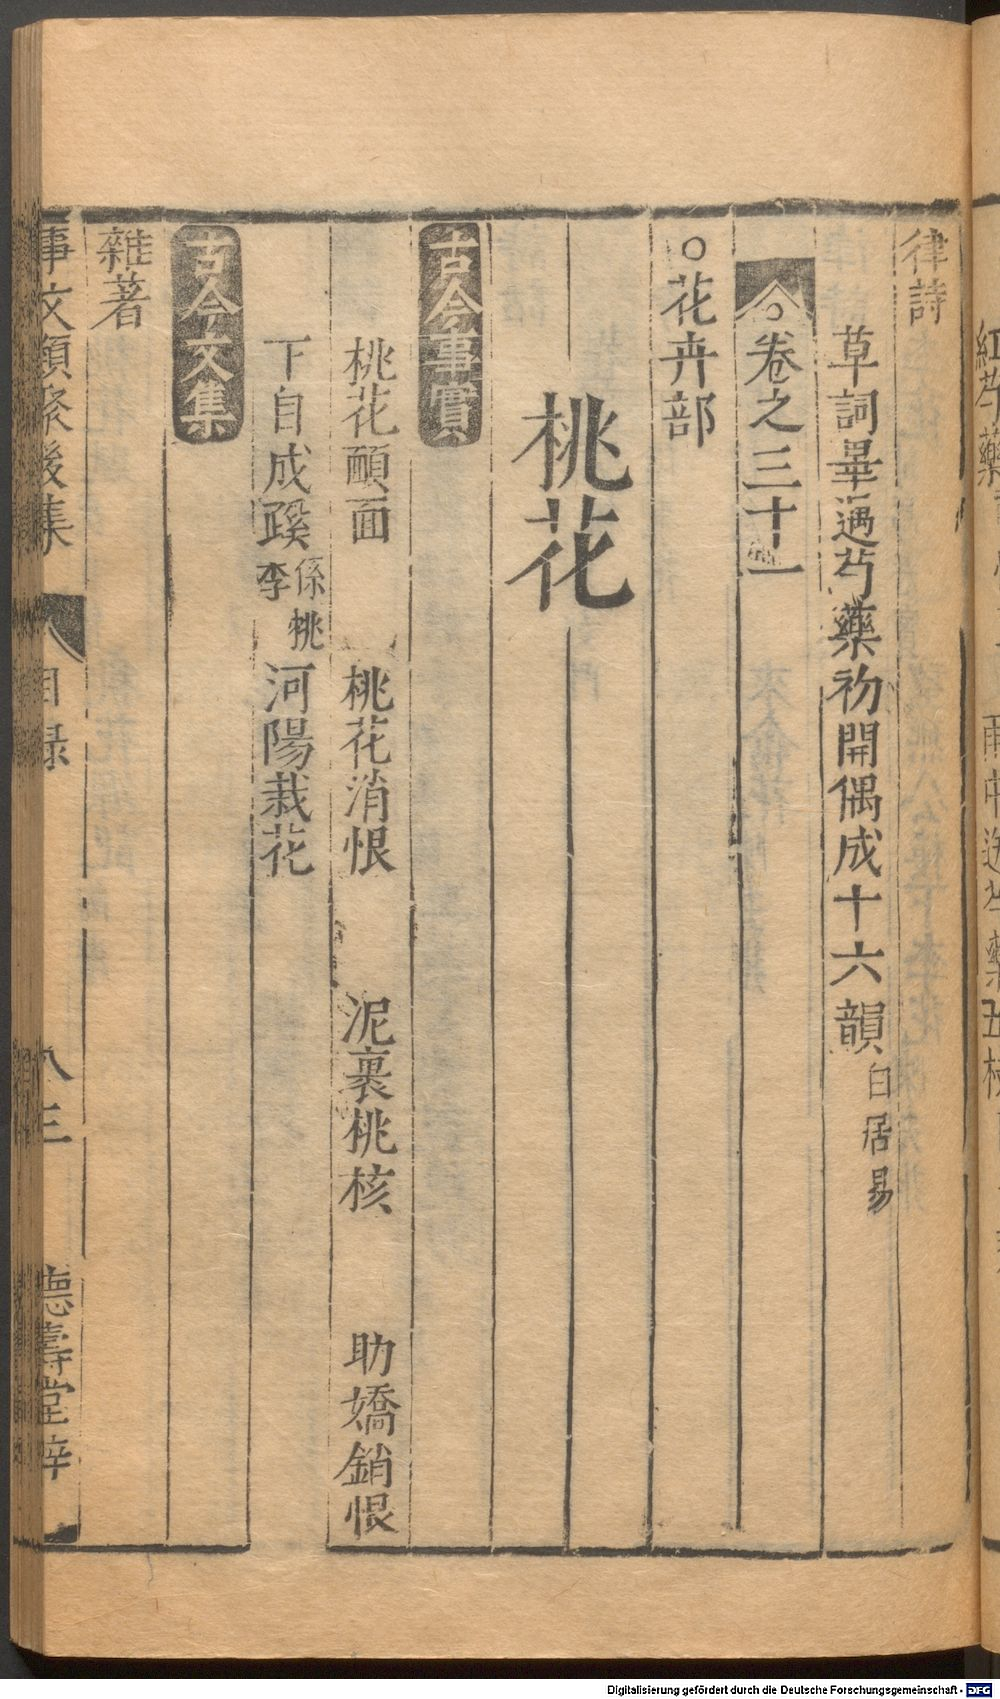 律詩
草詞畢遇芍藥初開偶成十六韻 白居易
卷之三十一
○花卉部
桃花
古今事實
桃花頮面 桃花消恨 泥裹桃核 助嬌銷恨
下自成蹊 係桃李 河陽栽花
古今文集
雜著
事文類聚後集 目録 八三 德壽堂梓
Digitalisierung gefördert durch die Deutsche Forschungsgemeinschaft - DFG